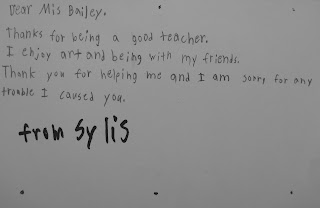 Dear Mis Bailey.
Thanks for being a good teacher.
I enjoy art and being with my friends.
Thank you for helping me and I am sorry for any
trouble I caused you.
from Sylis